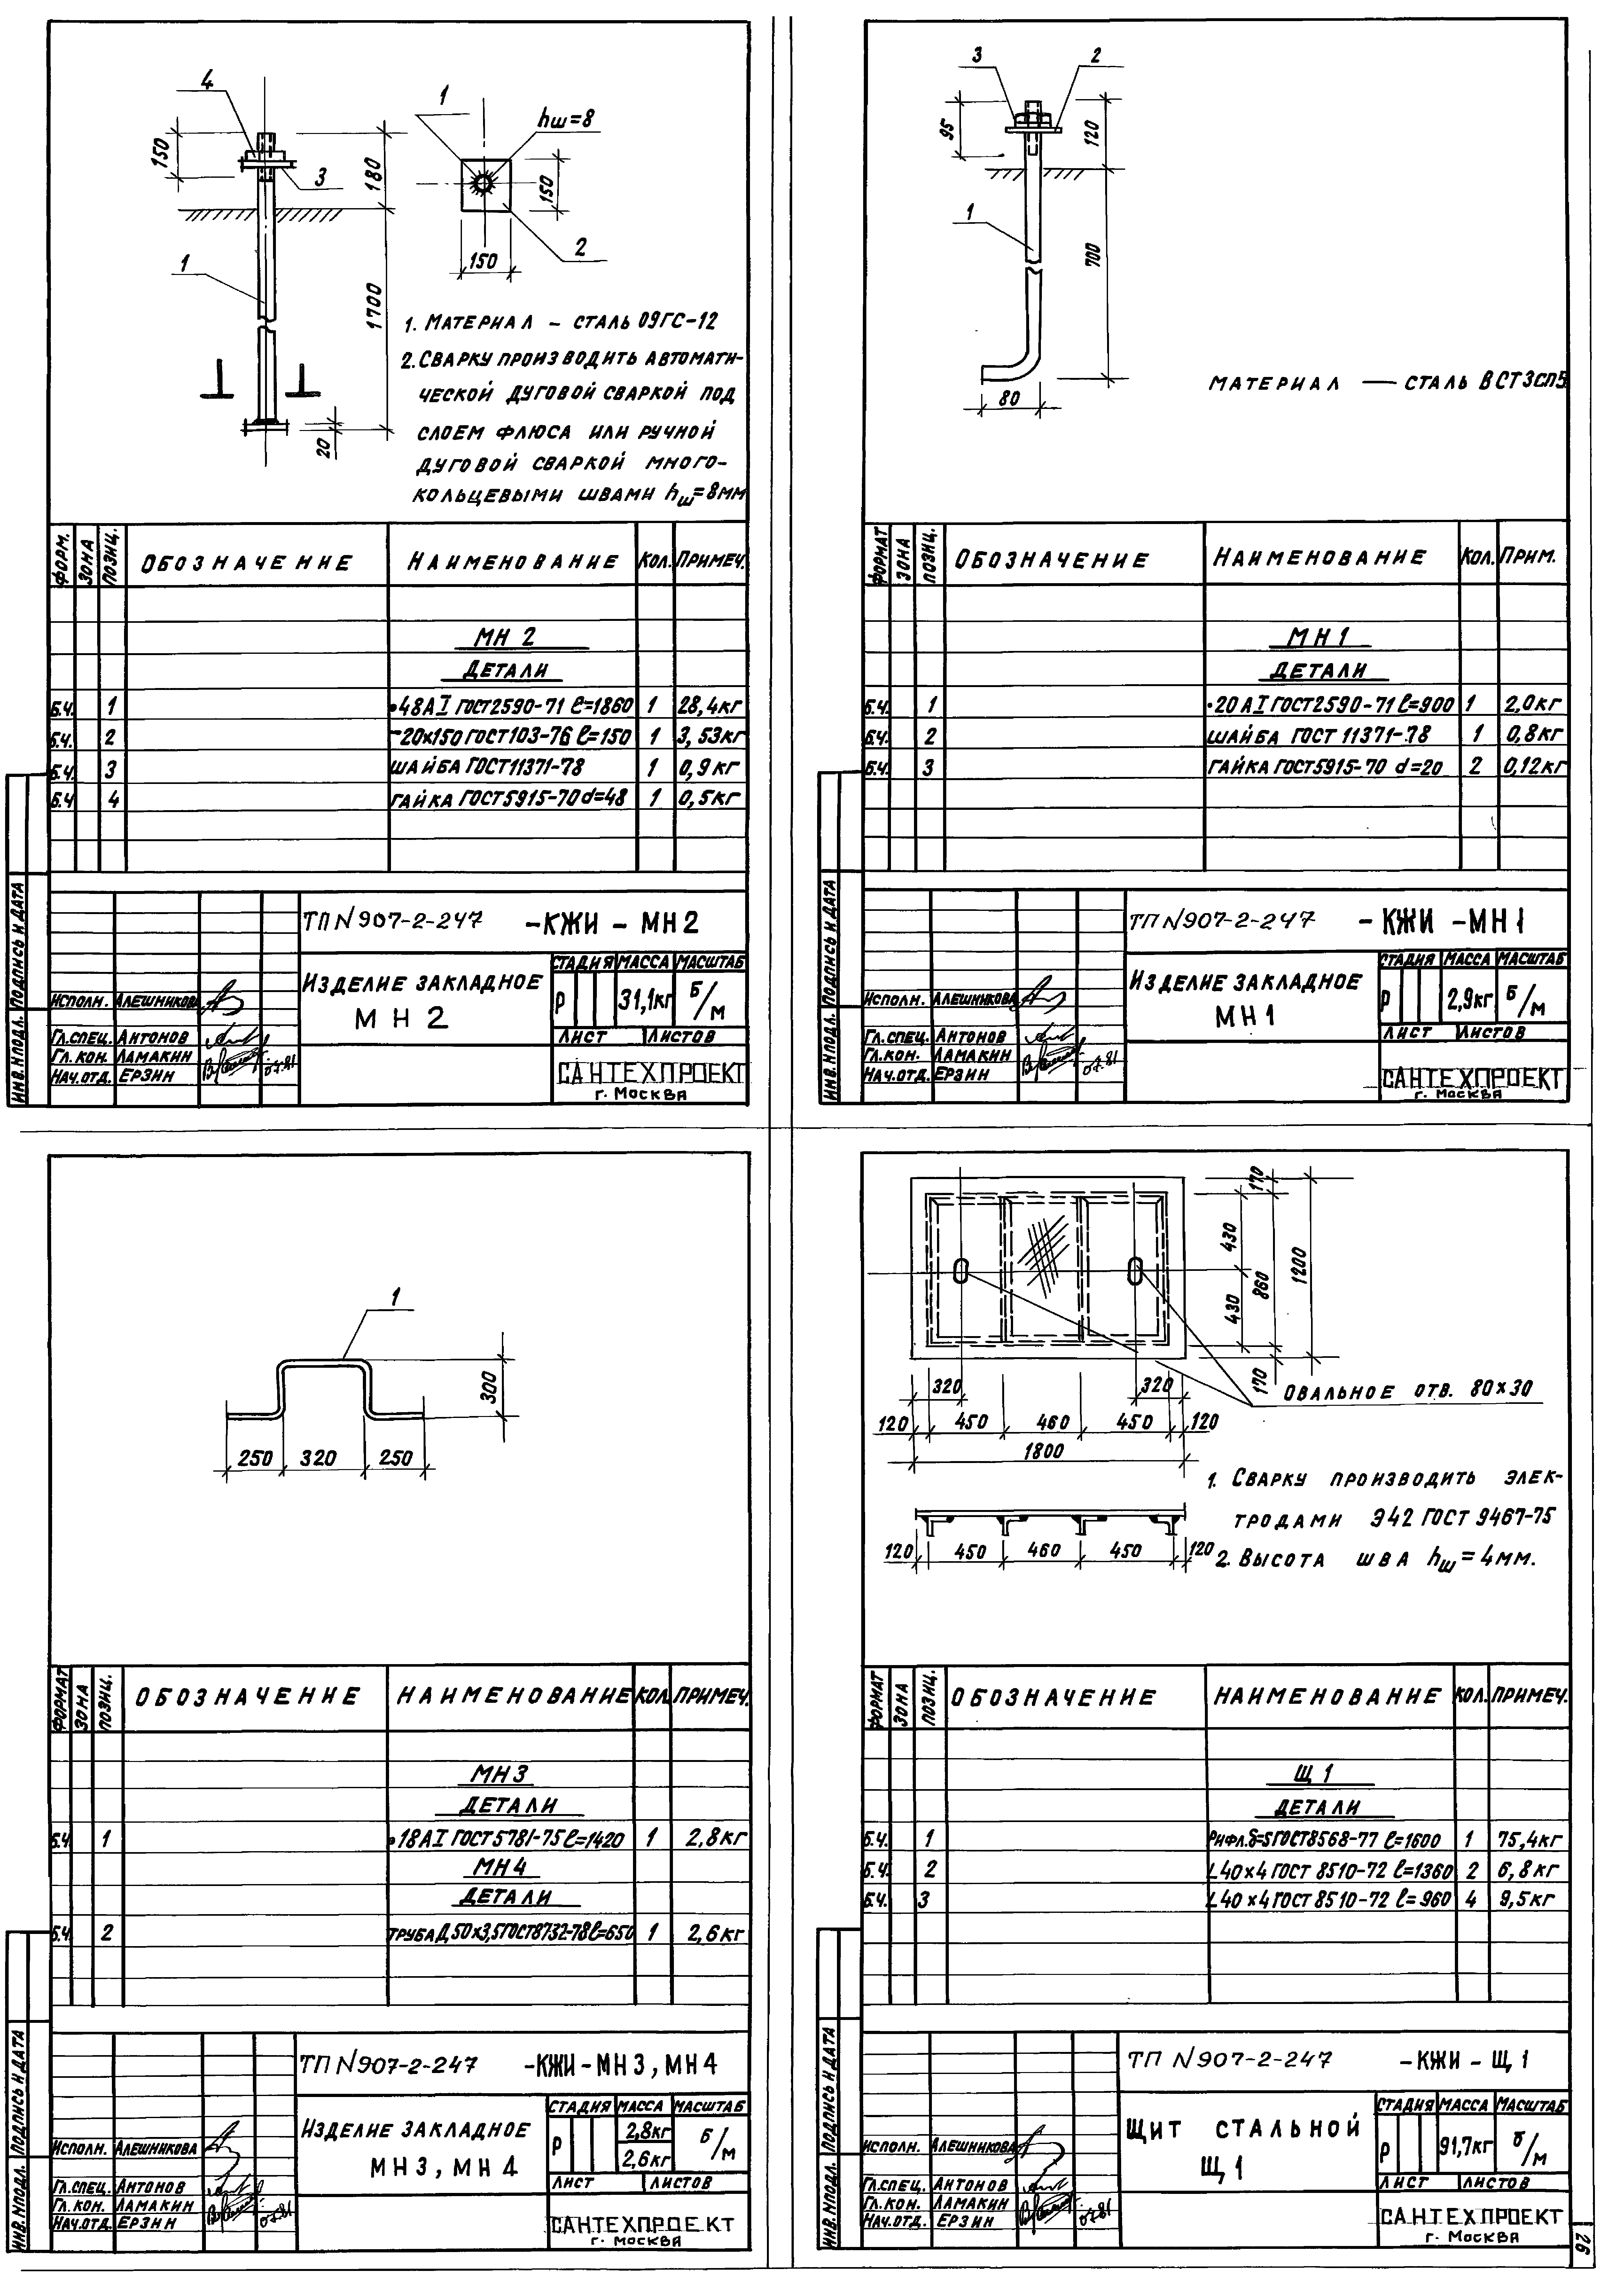 4
150
3
180
1
1700
20
1
hш=8
150
150
2
1. Материал – сталь 09ГС-12
2. Сварку производить автомати-
ческой дуговой сваркой под
слоем флюса или ручной
дуговой сваркой много-
кольцевыми швами hш=8мм
Форм. Зона Позиц. Обозначение Наименование Кол. Примеч.
МН 2
Детали
Б.Ч. 1 •48АI ГОСТ2590-71 ℓ=1860 1 28,4кг
Б.Ч. 2 –20×150 ГОСТ103-76 ℓ=150 1 3,53кг
Б.Ч. 3 Шайба ГОСТ11371-78 1 0,9кг
Б.Ч 4 Гайка ГОСТ5915-70 d=48 1 0,5кг
ТП N 907-2-247 -КЖИ - МН2
Изделие закладное
МН2
Стадия Масса Масштаб
Р 31,1кг Б/М
Лист Листов
Исполн. Алешникова
Гл.спец. Антонов
Гл. кон. Ламакин
Нач.отд. Ерзин 07.81
САНТЕХПРОЕКТ
г. Москва
Инв.Nподл. Подпись и дата
3
2
95
120
1
700
80
Материал — сталь ВСТ3сп5
Формат Зона Позиц. Обозначение Наименование Кол. Прим.
МН1
Детали
Б.Ч. 1 •20АI ГОСТ2590-71 ℓ=900 1 2,0кг
Б.Ч. 2 Шайба ГОСТ 11371-78 1 0,8кг
Б.Ч. 3 Гайка ГОСТ5915-70 d=20 2 0,12кг
ТП N 907-2-247 -КЖИ -МН1
Изделие закладное
МН1
Стадия Масса Масштаб
Р 2,9кг Б/М
Лист Листов
Исполн. Алешникова
Гл.спец. Антонов
Гл. кон. Ламакин
Нач.отд. Ерзин 07.81
САНТЕХПРОЕКТ
г. Москва
Инв.Nподл. Подпись и дата
1
300
250 320 250
Формат Зона Позиц. Обозначение Наименование Кол. Примеч.
МН3
Детали
Б.Ч. 1 •18АI ГОСТ5781-75 ℓ=1420 1 2,8кг
МН4
Детали
Б.Ч. 2 Труба Д.50×3,5 ГОСТ8732-78 ℓ=650 1 2,6кг
ТП N 907-2-247 -КЖИ-МН3, МН4
Изделие закладное
МН3, МН4
Стадия Масса Масштаб
Р 2,8кг Б/М
2,6кг
Лист Листов
Исполн. Алешникова
Гл.спец. Антонов
Гл. кон. Ламакин
Нач.отд. Ерзин 07.81
САНТЕХПРОЕКТ
г. Москва
Инв.Nподл. Подпись и дата
170
430
430
860
1200
170
320 320
120 450 460 450 120
1800
Овальное отв. 80×30
120 450 460 450 120
1. Сварку производить элек-
тродами Э42 ГОСТ 9467-75
2. Высота шва hш=4мм.
Формат Зона Позиц. Обозначение Наименование Кол. Примеч.
Щ 1
Детали
Б.Ч. 1 Рифл. δ=5 ГОСТ8568-77 ℓ=1600 1 75,4кг
Б.Ч. 2 L40×4 ГОСТ 8510-72 ℓ=1360 2 6,8кг
Б.Ч. 3 L40×4 ГОСТ 8510-72 ℓ=960 4 9,5кг
ТП N 907-2-247 -КЖИ - Щ1
Щит стальной
Щ1
Стадия Масса Масштаб
Р 91,7кг б/М
Лист Листов
Исполн. Алешникова
Гл.спец. Антонов
Гл. кон. Ламакин
Нач.отд. Ерзин 07.81
САНТЕХПРОЕКТ
г. Москва
Инв.Nподл. Подпись и дата
26